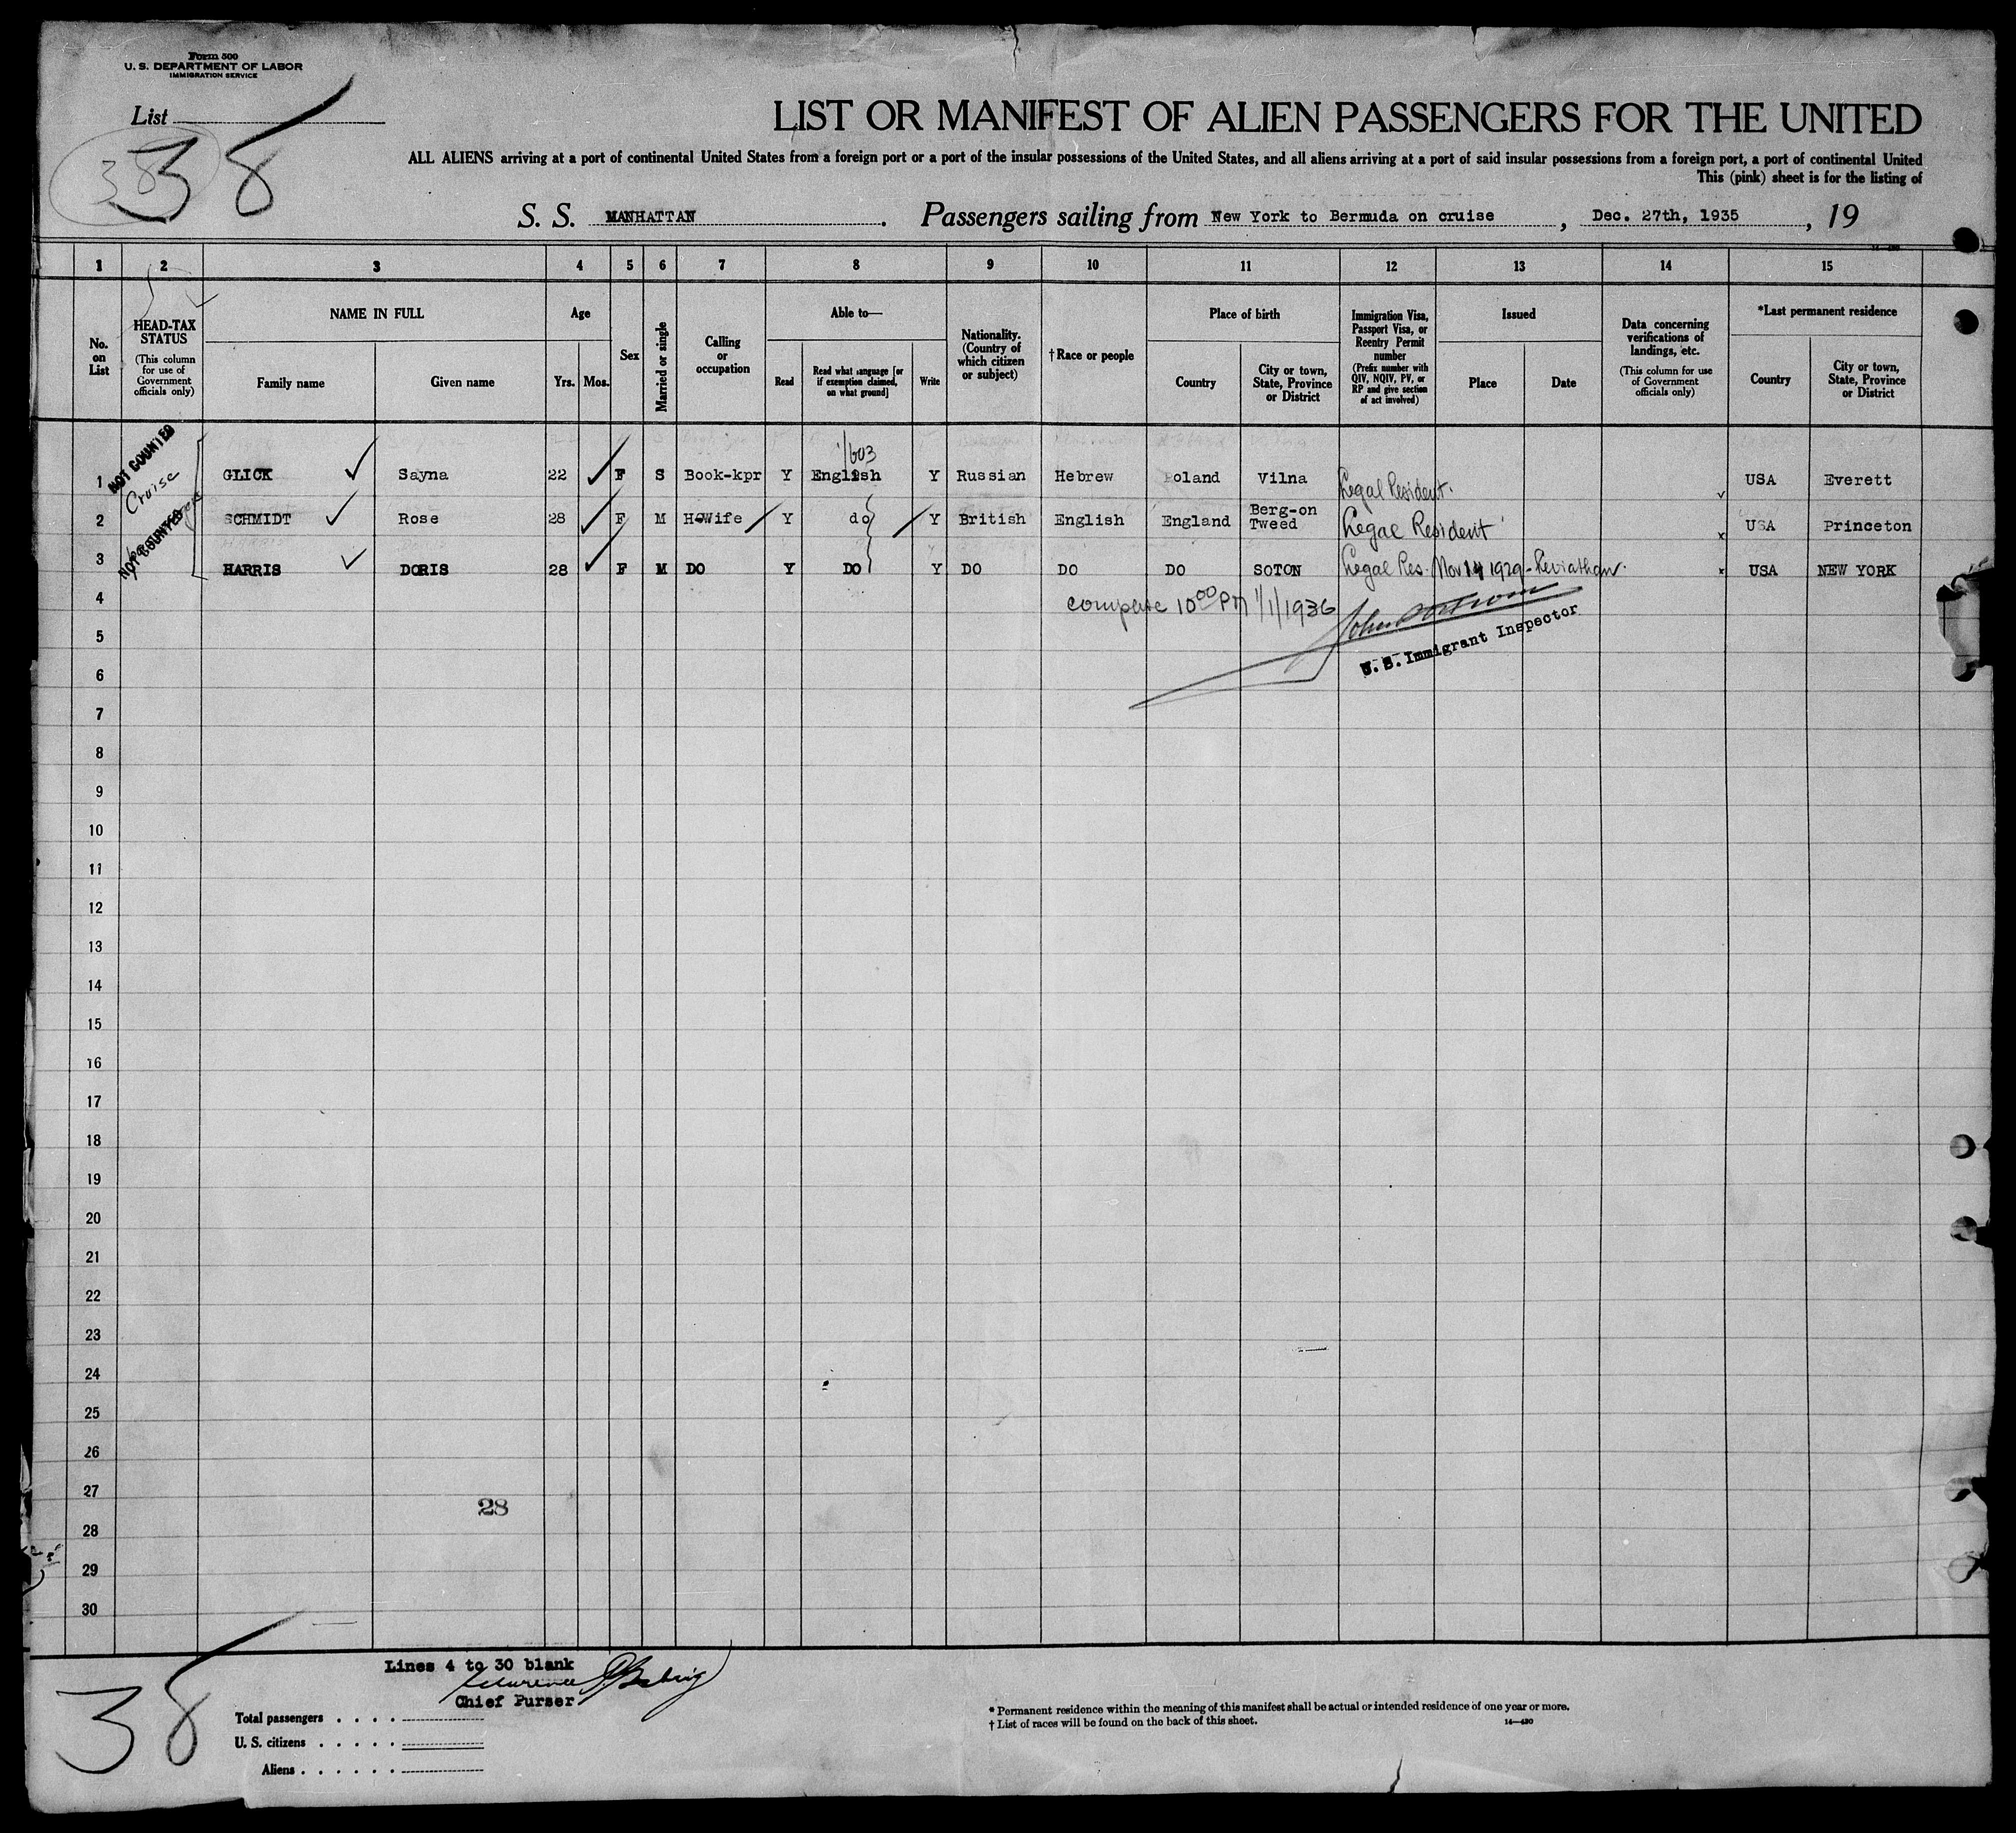 Form 500
U. S. DEPARTMENT OF LABOR
IMMIGRATION SERVICE
List
38
38
LIST OR MANIFEST OF ALIEN PASSENGERS FOR THE UNITED
ALL ALIENS arriving at a port of continental United States from a foreign port or a port of the insular possessions of the United States, and all aliens arriving at a port of said insular possessions from a foreign port, a port of continental United
This (pink) sheet is for the listing of
S. S. MANHATTAN . Passengers sailing from New York to Bermuda on cruise , Dec. 27th, 1935 , 19
1 2 3 4 5 6 7 8 9 10 11 12 13 14 15
No. on List
HEAD-TAX STATUS
(This column for use of Government officials only)
NAME IN FULL
Family name
Given name
Age
Yrs. Mos.
Sex
Married or single
Calling or occupation
Able to—
Read
Read what language [or if exemption claimed, on what ground]
Write
Nationality. (Country of which citizen or subject)
†Race or people
Place of birth
Country
City or town, State, Province or District
Immigration Visa, Passport Visa, or Reentry Permit number
(Prefix number with QIV, NQIV, PV, or RP and give section of act involved)
Issued
Place
Date
Data concerning verifications of landings, etc.
(This column for use of Government officials only)
*Last permanent residence
Country
City or town, State, Province or District
NOT COUNTED
Cruise
NOT COUNTED
1/603
1 GLICK Sayna 22 F S Book-kpr Y English Y Russian Hebrew Poland Vilna Legal Resident. USA Everett
2 SCHMIDT Rose 28 F M H-Wife Y do Y British English England Berg-on Tweed Legal Resident USA Princeton
3 HARRIS DORIS 28 F M DO Y DO Y DO DO DO SOTON Legal Res. Nov 14 1929 - Leviathan. USA NEW YORK
4 complete 10 00 PM 1/1/1936
U. S. Immigrant Inspector
5
6
7
8
9
10
11
12
13
14
15
16
17
18
19
20
21
22
23
24
25
26
27
28
28
29
30
Lines 4 to 30 blank
Chief Purser
38
Total passengers . . . .
U. S. citizens . . . . .
Aliens . . . . . .
* Permanent residence within the meaning of this manifest shall be actual or intended residence of one year or more.
† List of races will be found on the back of this sheet.
14—430